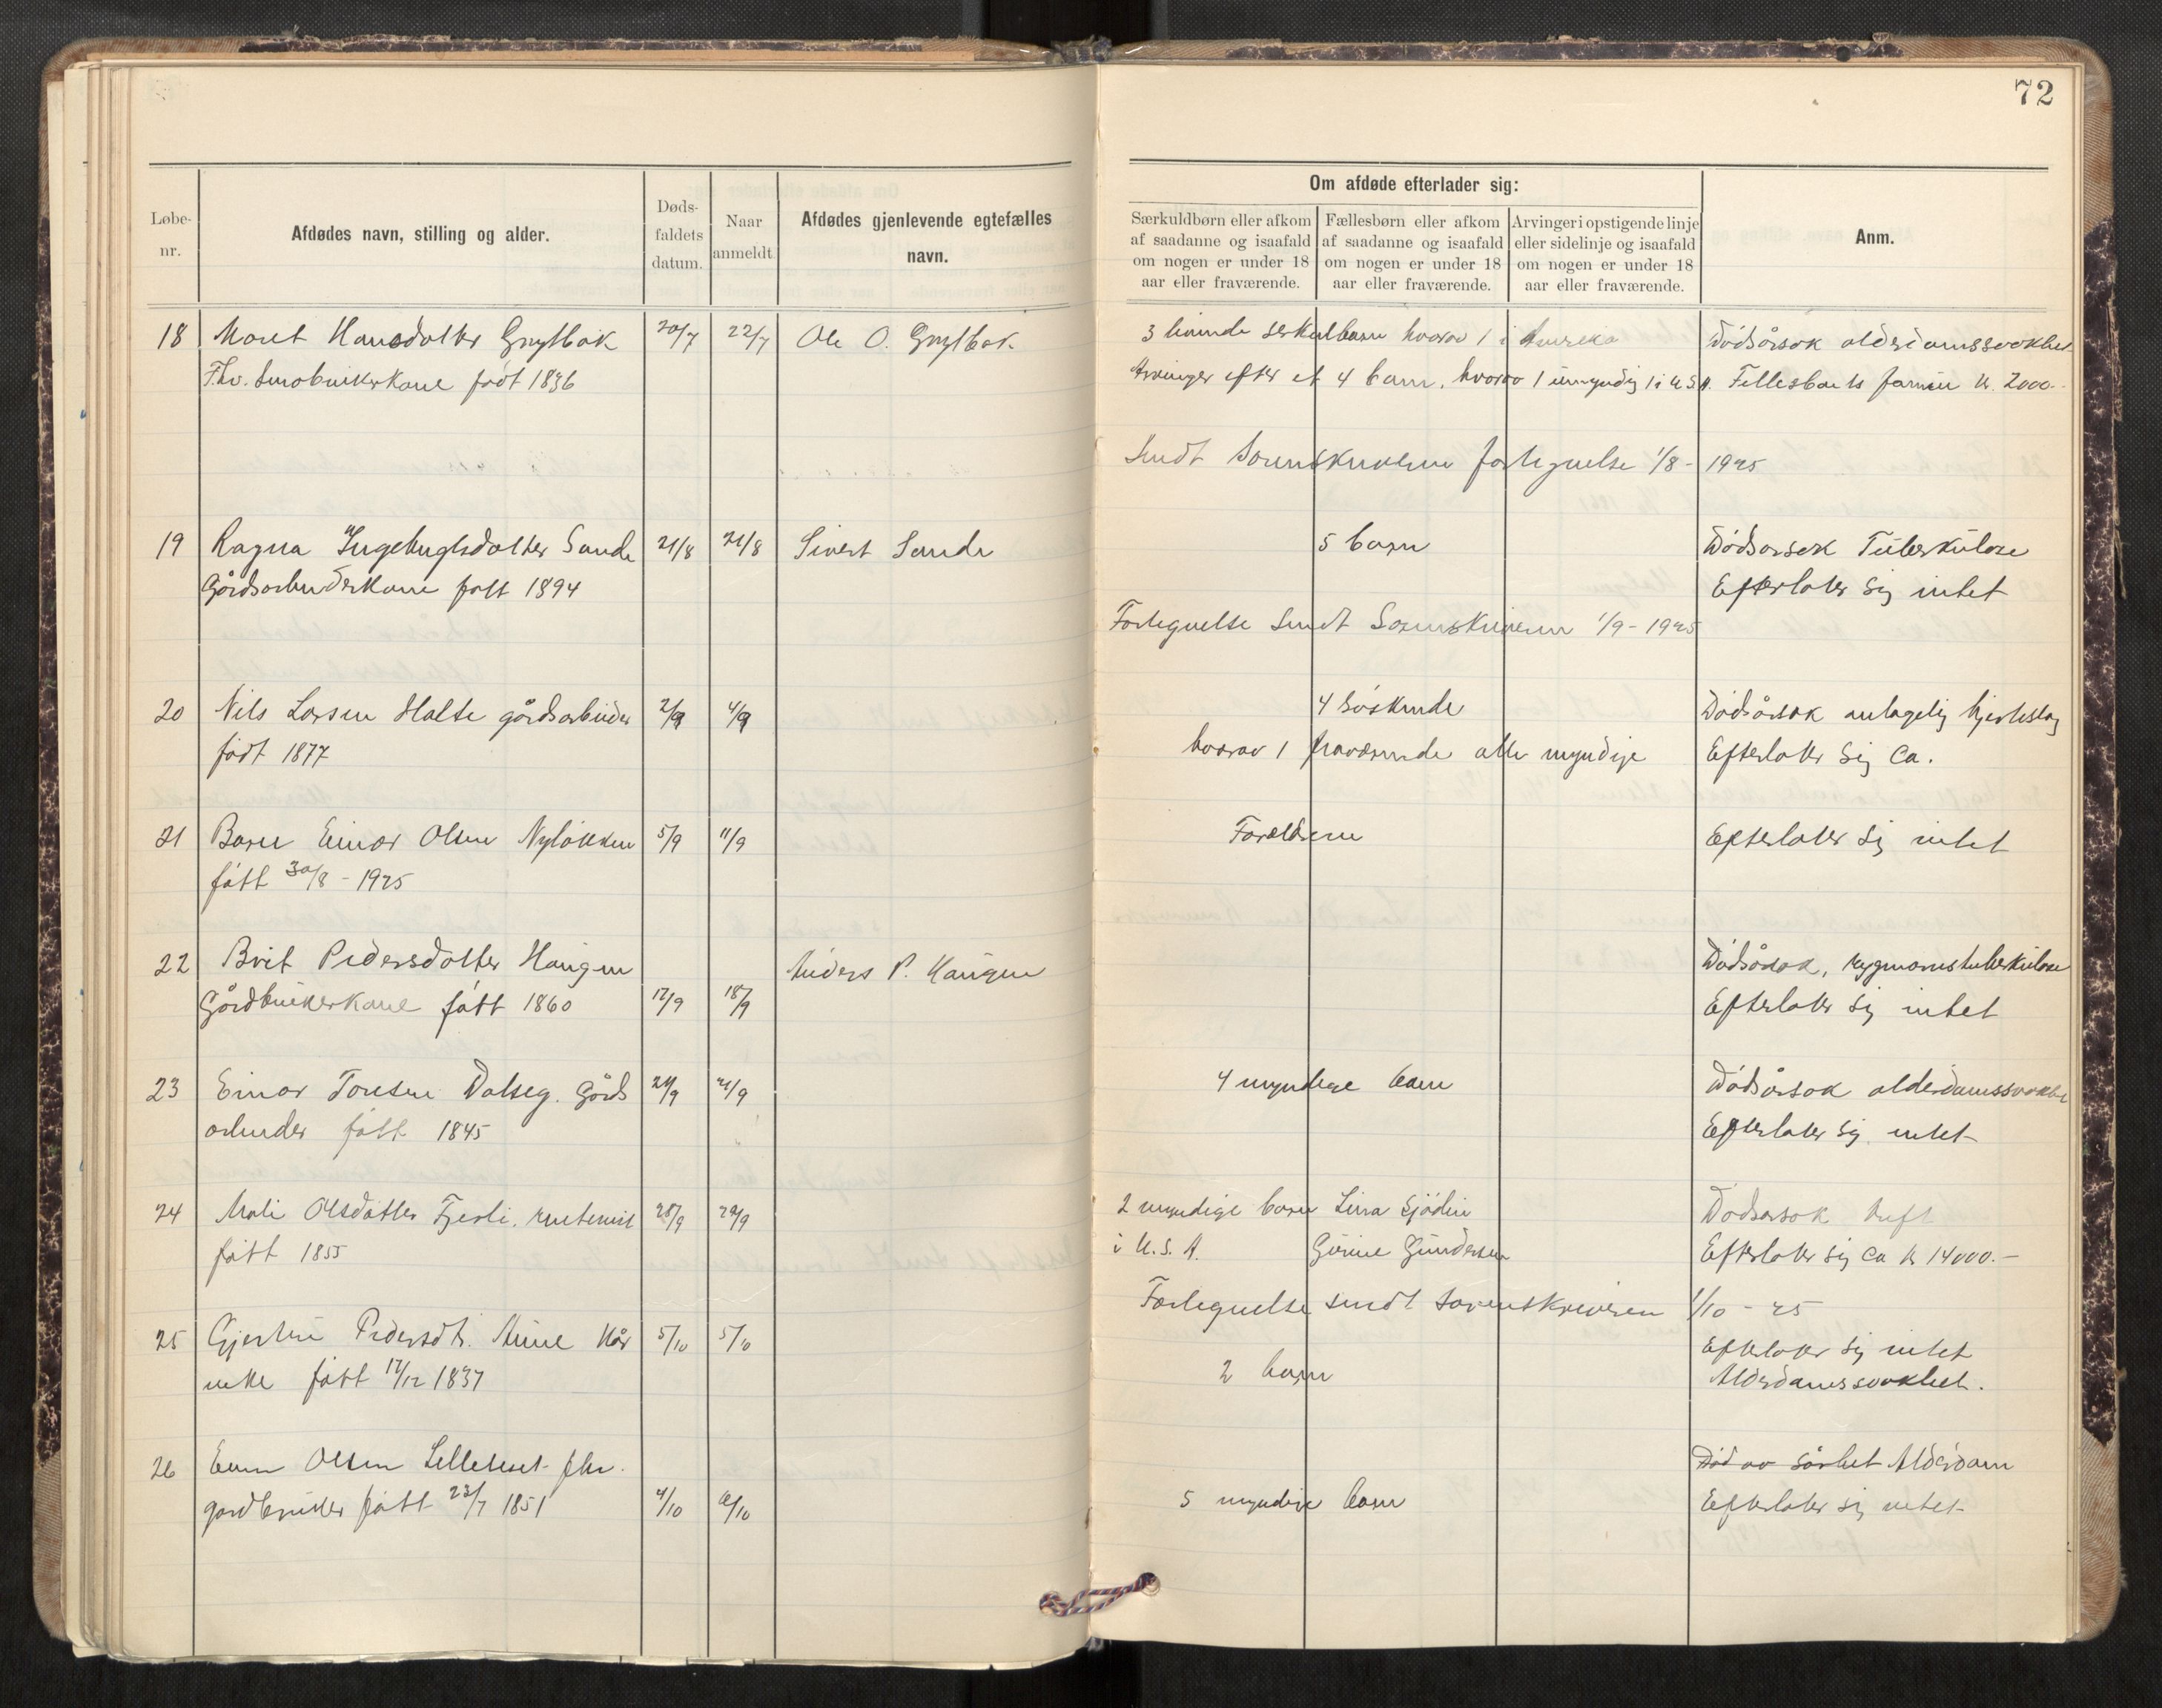 72
Løbe-
nr.
Afdødes navn, stilling og alder.
Døds-
faldets
datum.
Naar
anmeldt
Afdødes gjenlevende egtefælles
navn.
Om afdøde efterlader sig:
Særkuldbørn eller afkom
af saadanne og isaafald
om nogen er under 18
aar eller fraværende.
Fællesbørn eller afkom
af saadanne og isaafald
om nogen er under 18
aar eller fraværende.
Arvinger i opstigende linje
eller sidelinje og isaafald
om nogen er under 18
aar eller fraværende.
Anm.
18 Marit Hansdatter 20/7 22/7 Ole O. 3 serkulbarn hvorav 1 i Amerika Dødsårsak alderdomssvakhet
født 1836 Arvinger efter et 4 barn, hvorav 1 umyndig 1 i U.S.A. Fellesboets formue kr. 2000.-
Sendt Sorenskriveren fortegnelse 1/8 - 1925
19 Ragna Ingebrigtsdatter Sande 21/8 21/8 Sivert Sande 5 barn Dødsorsak Tuberkulose
Gårdsarbeiderkone født 1894 Efterlater sig intet
Fortegnelse sendt Sorenskriveren 1/9 - 1925
20 Nils Larsen Halte gårdsarbeider 2/9 4/9 4 søskende Dødsårsak antagelig hjerteslag
født 1877 hvorav 1 fraværende alle myndige Efterlater sig ca.
21 Barn Einar Olsen Nyløkken 5/9 11/9 Forældrene Efterlater sig intet
født 30/8 - 1925
22 Brit Pedersdatter Haugen Anders P. Haugen Dødsårsak, rygmarvstuberkulose
Gårdbrukerkone født 1860 17/9 18/9 Efterlater sig intet
23 Einar Toresen Dalseg. Gårds 21/9 21/9 4 myndige barn Dødsårsak alderdomssvakhet
arbeider født 1845 Efterlater sig intet
24 Mali Olsdatter Fjerli. 28/9 29/9 2 myndige barn Lina Sjödin Dødsorsak kreft
født 1855 i U.S.A. Gurine Gundersen Efterlater sig ca kr 14000.-
Fortegnelse sendt sorenskriveren 1/10 - 25
25 Gjertru Pedersdtr. 5/10 5/10 Efterlater sig intet
født 17/12 1837 2 barn Alderdomssvakhet.
26 Even Olsen Lilleset fhv. Død av sårhet Alderdom
gardbruker født 23/7 1851 4/10 6/10 5 myndige barn Efterlater sig intet